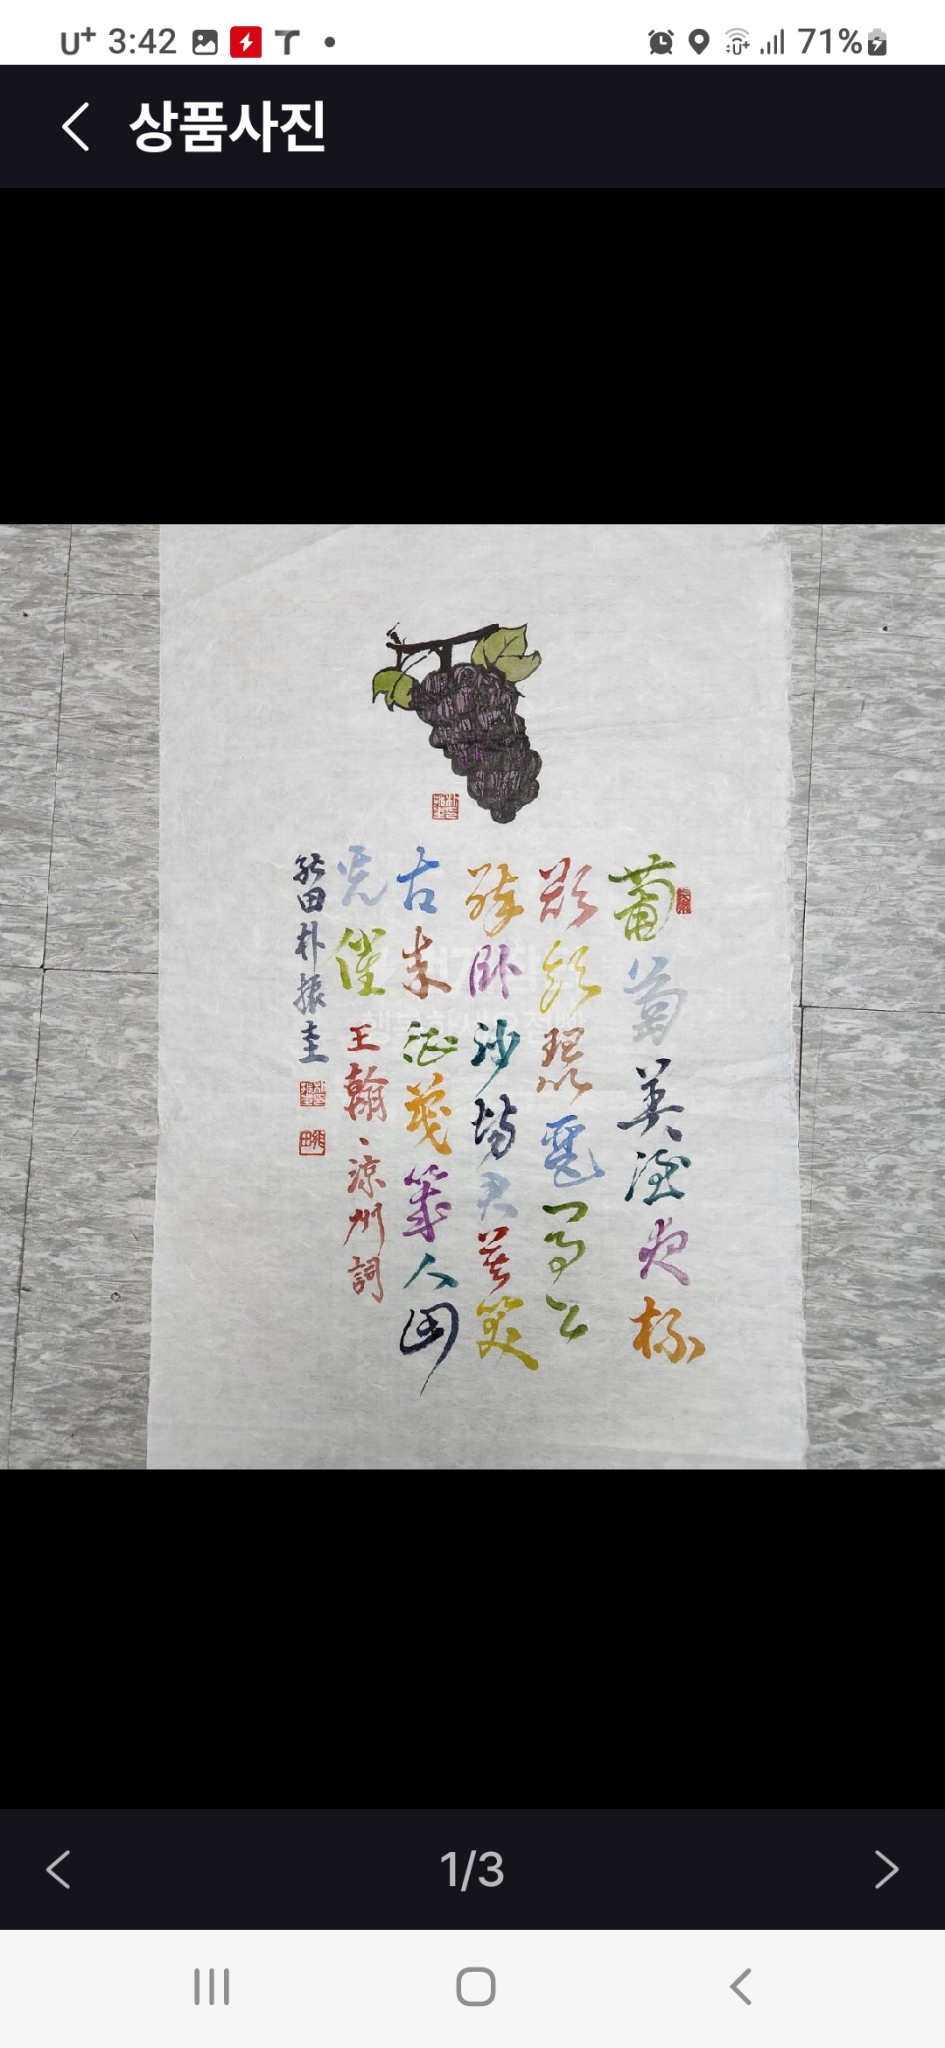 U+ 3:42 71%
상품사진
葡萄美酒夜杯
欲飲琵琶馬上
醉臥沙場君莫笑
古來征戰幾人回
王翰、涼州詞
田朴振圭
1/3